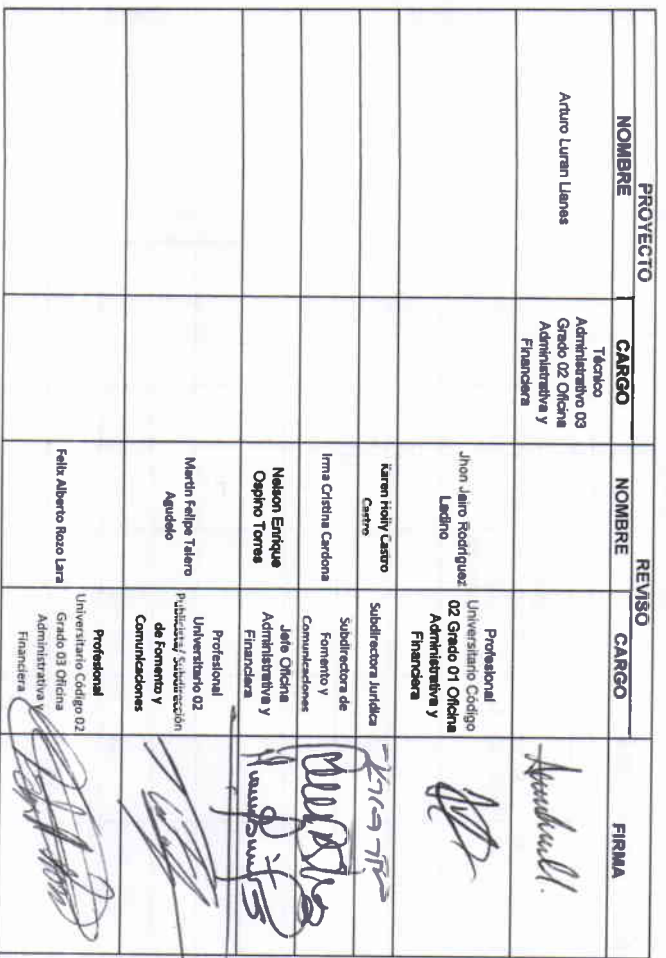 PROYECTO REVISO
NOMBRE CARGO NOMBRE CARGO FIRMA
Arturo Luran Llanes
Técnico
Administrativo 03
Grado 02 Oficina
Administrativa y
Financiera
Jhon Jairo Rodríguez
Ladino
Profesional
Universitario Código
02 Grado 01 Oficina
Administrativa y
Financiera
Karen Holly Castro
Castro
Subdirectora Jurídica
Irma Cristina Cardona
Subdirectora de
Fomento y
Comunicaciones
Nelson Enrique
Ospino Torres
Jefe Oficina
Administrativa y
Financiera
Martin Felipe Talero
Agudelo
Profesional
Universitario 02
Publicista/ Subdirección
de Fomento y
Comunicaciones
Felix Alberto Rozo Lara
Profesional
Universitario Código 02
Grado 03 Oficina
Administrativa y
Financiera